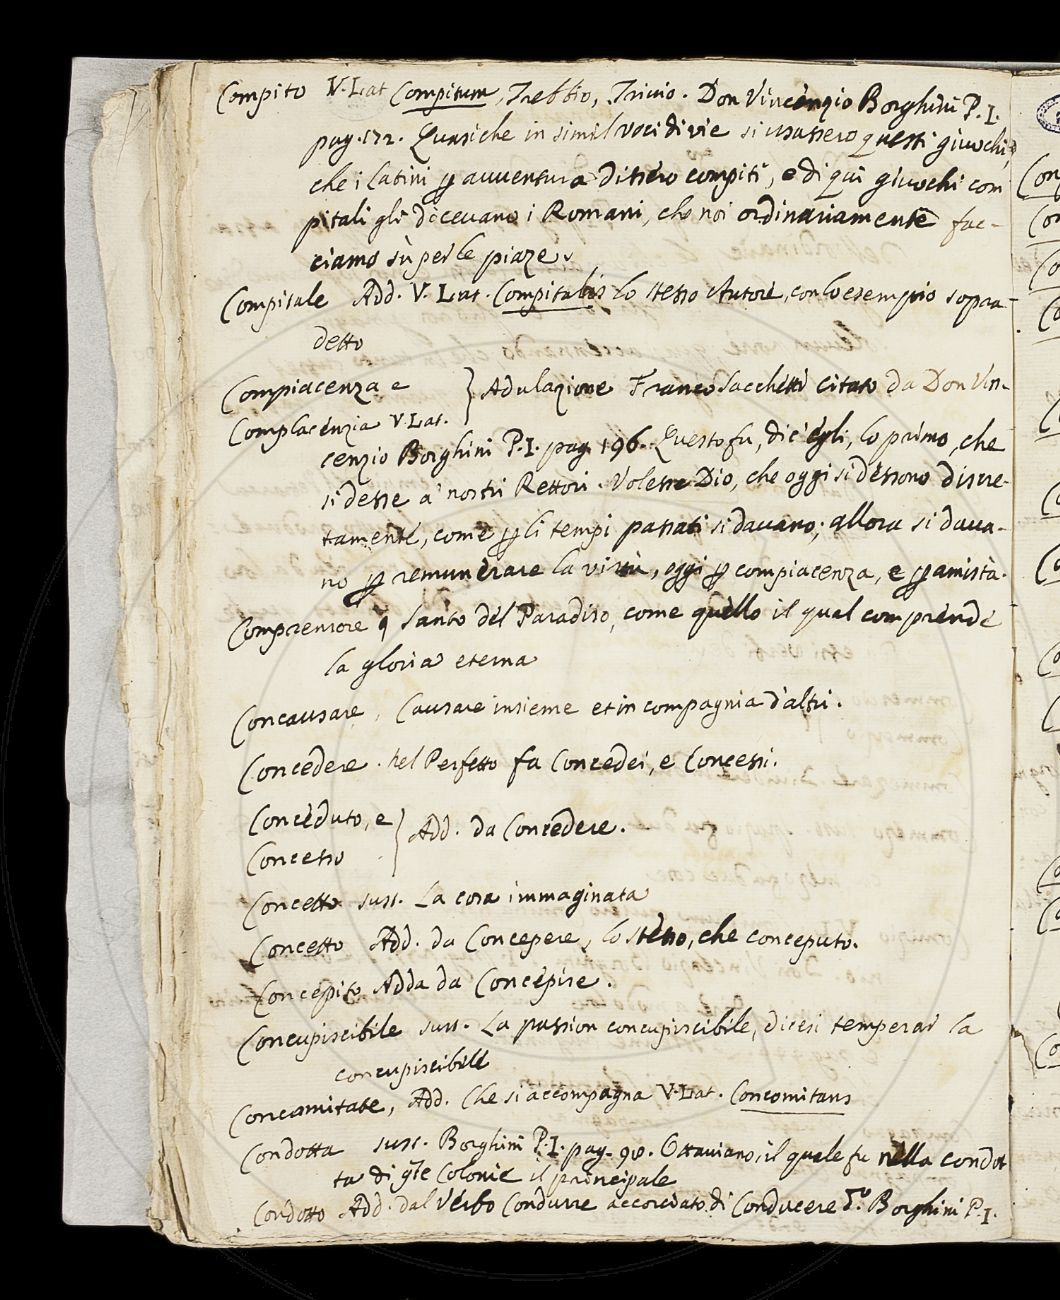 Compito V. Lat Compitum, Trebbio, Trivio. Don Vincenzio Borghini P. I.
pag. 172. Quasiche in simil voci di vie si usassero questi giuochi,
che i latini ꝑ avventura dissero compiti, e di quì giuochi com
pitali gli dicevano i Romani, che noi ordinariamente fac-
ciamo sù per le piaze.
Compitale Add. V. Lat. Compitalis lo stesso Autore, con lo esempio sopra-
detto
Compiacenza e
Complacenzia V. Lat. } Adulazione Franco Sacchetti citato da Don Vin-
cenzio Borghini P. I. pag. 196. Questo fu, dic'egli, lo primo, che
si desse a' nostri Rettori. Volesse Dio, che oggi si dessono discre-
tamente, come ꝑ li tempi passati si davano; allora si dava-
no ꝑ remunerare la virtù, oggi ꝑ compiacenza, e ꝑ amistà.
Comprensore Santo del Paradiso, come quello il qual comprende
la gloria eterna
Concausare, Causare insieme et in compagnia d'altri.
Concedere. nel Perfetto fa Concedei, e Concessi.
Conceduto, e
Concesso } Add. da Concedere.
Concetto sust. La cosa immaginata
Concetto Add. da Concepere, lo stesso, che conceputo.
Concepito Adda da Concepire.
Concupiscibile sust. La passion concupiscibile, dicesi temperar la
concupiscibile
Concomitate, Add. Che si accompagna V. Lat. Concomitans
Condotta sust. Borghini P. I. pag. 98. Ottaviano, il quale fu nella condot
ta di q̃te Colonie il principale
Condotto Add. dal Verbo Condurre accorciato di Conducere Borghini P. I.